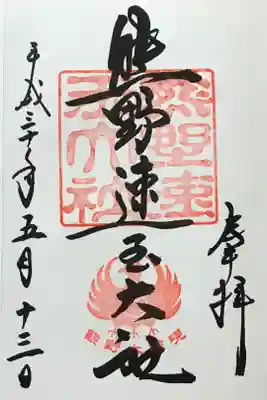 奉拝
熊野速玉大社
平成三十年五月十三日
熊野速
玉大社